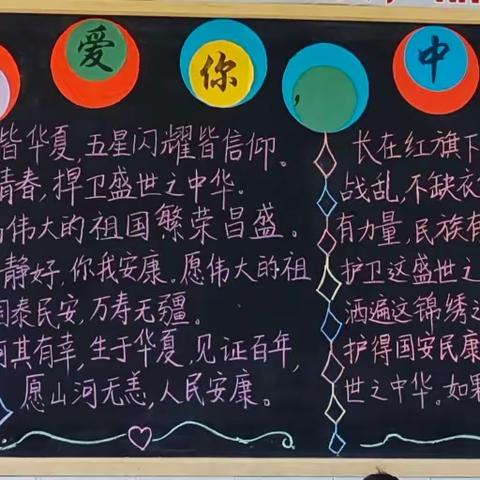 爱你，中
皆华夏，五星闪耀皆信仰。
青春，捍卫盛世之中华。
伟大的祖国繁荣昌盛。
静好，你我安康。愿伟大的祖
国泰民安，万寿无疆。
河其有幸，生于华夏，见证百年，
愿山河无恙，人民安康。
长在红旗下
战乱，不缺衣
有力量，民族有
护卫这盛世之
洒遍这锦绣之
护得国安民康
世之中华。如果